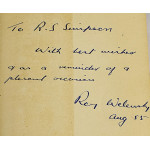 To R.S Simpson
With best wishes
& as a reminder of a
pleasant occasion
Roy Welensky
Aug 85